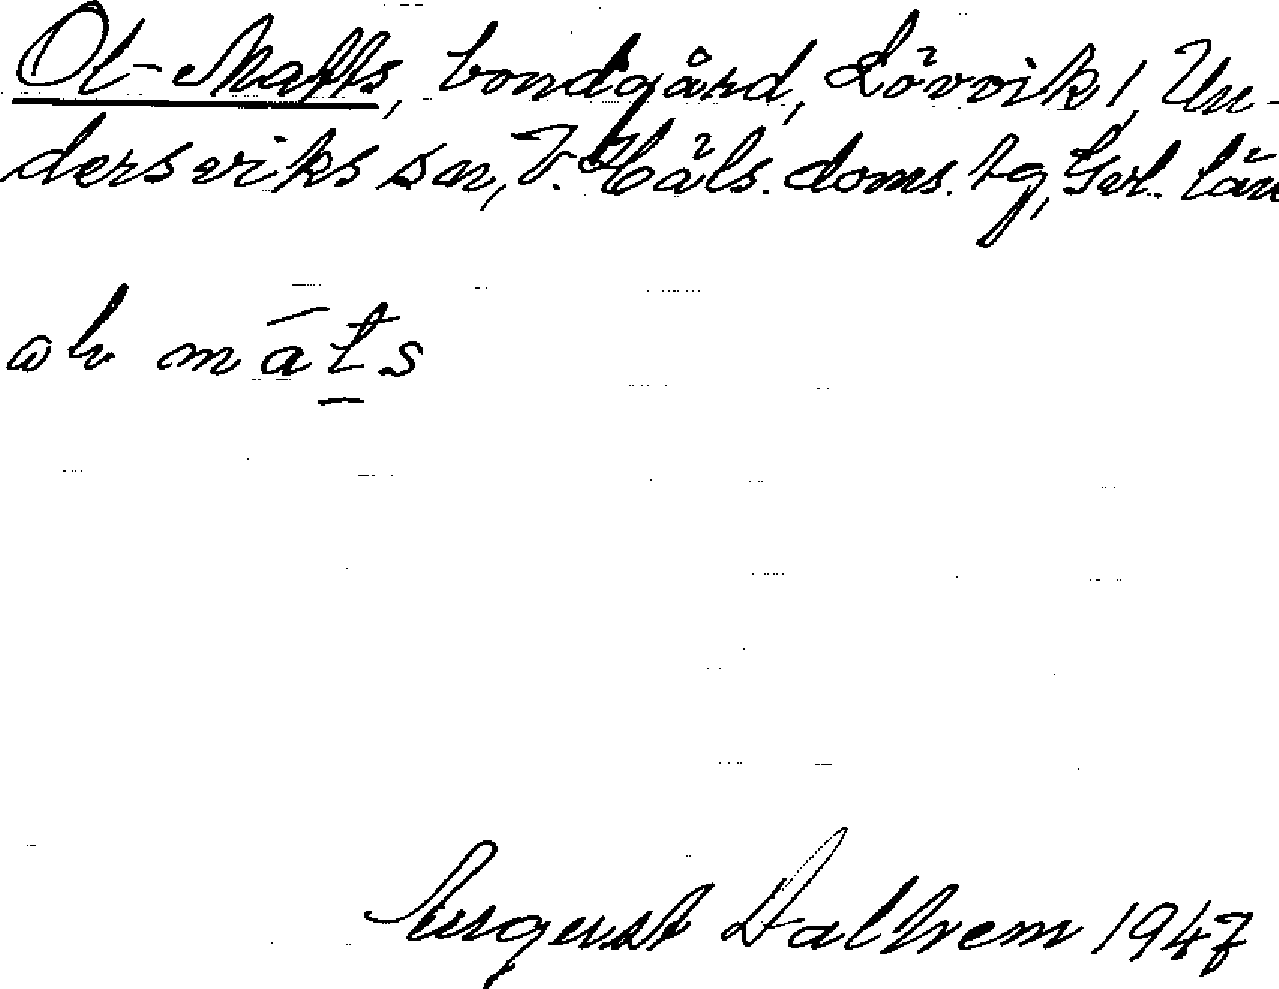 Ol-Matts, bondgård, Lövvik 1, Un-
dersviks sn, V. Häls. doms. tg, Gvl. län
māt̠s
August Dalhem 1947